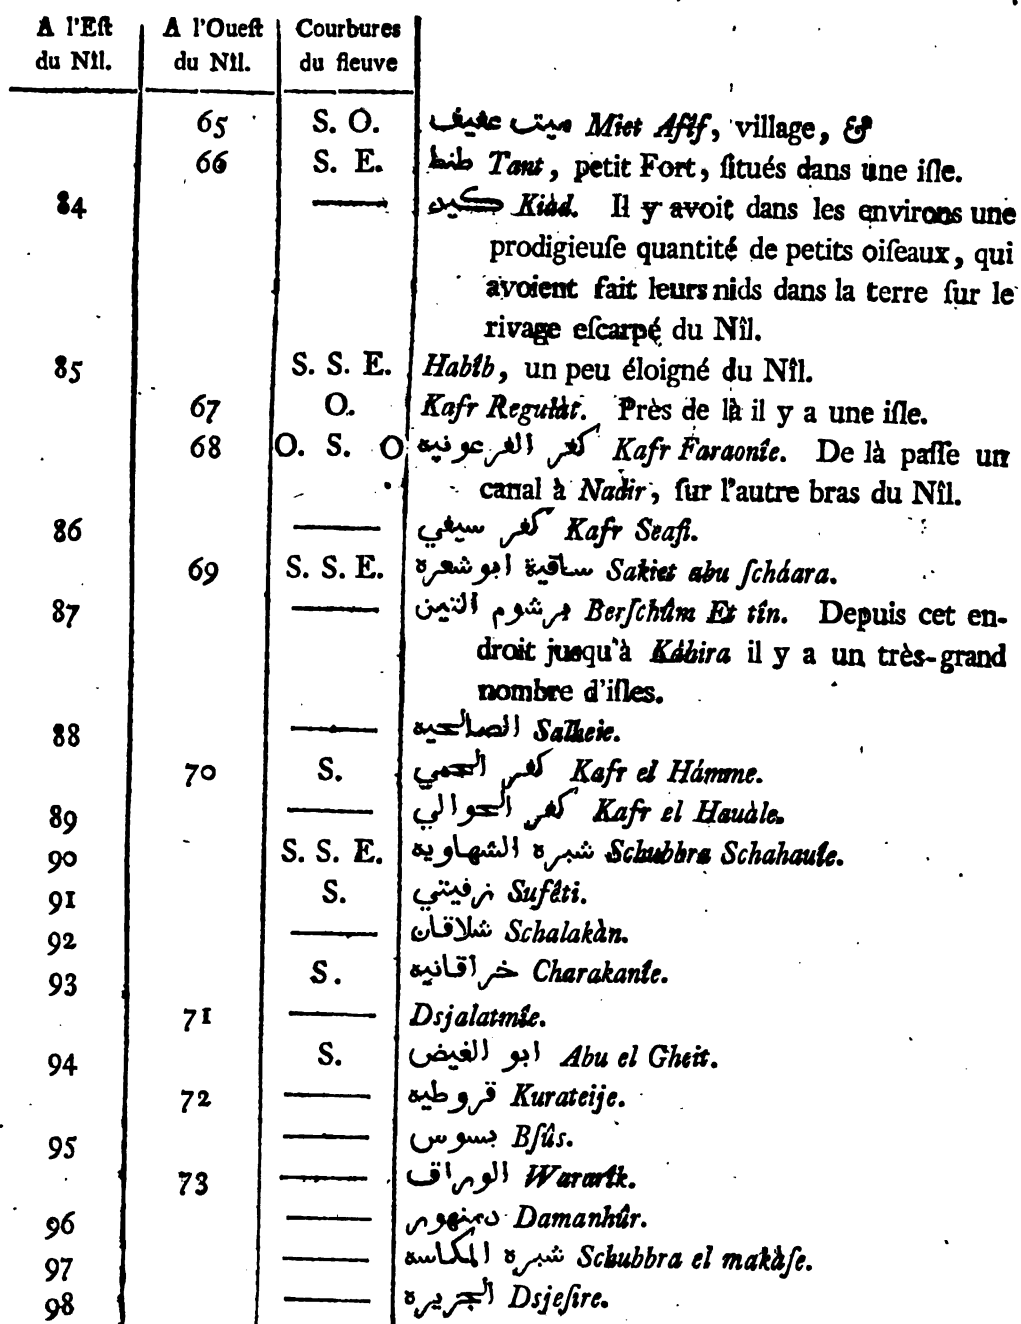 A l'Eſt du Nîl. | A l'Oueſt du Nîl. | Courbures du fleuve
65 S. O. ميت عفيف Miet Afîf, village, &
66 S. E. طنط Tant, petit Fort, ſitués dans une iſle.
84 — كيد Kiàd. Il y avoit dans les environs une
prodigieuſe quantité de petits oiſeaux, qui
avoient fait leurs nids dans la terre ſur le
rivage eſcarpé du Nîl.
85 S. S. E. Habîb, un peu éloigné du Nîl.
67 O. Kafr Regulàt. Près de là il y a une iſle.
68 O. S. O كفر الفرعونيه Kafr Faraonîe. De là paſſe un
canal à Nadir, ſur l'autre bras du Nîl.
86 — كفر سيفي Kafr Seafi.
69 S. S. E. ساقية ابو شعره Sakiet abu ſcháara.
87 — برشوم التين Berſchûm Et tîn. Depuis cet en-
droit juſqu'à Káhira il y a un très-grand
nombre d'iſles.
88 — الصالحيه Salheie.
70 S. كفر الحمي Kafr el Hámme.
89 — كفر الحوالي Kafr el Hauàle.
90 S. S. E. شبره الشهاويه Schubbra Schahauîe.
91 S. زفيتي Sufêti.
92 — شلاقان Schalakàn.
93 S. خراقانيه Charakanîe.
71 — Dsjalatmîe.
94 S. ابو الغيض Abu el Gheit.
72 — قروطيه Kurateije.
95 — بسوس Bſûs.
73 — الوراق
96 — دمنهور Damanhûr.
97 — شبره المكاسه Schubbra el makàſe.
98 — الجزيره Dsjeſire.